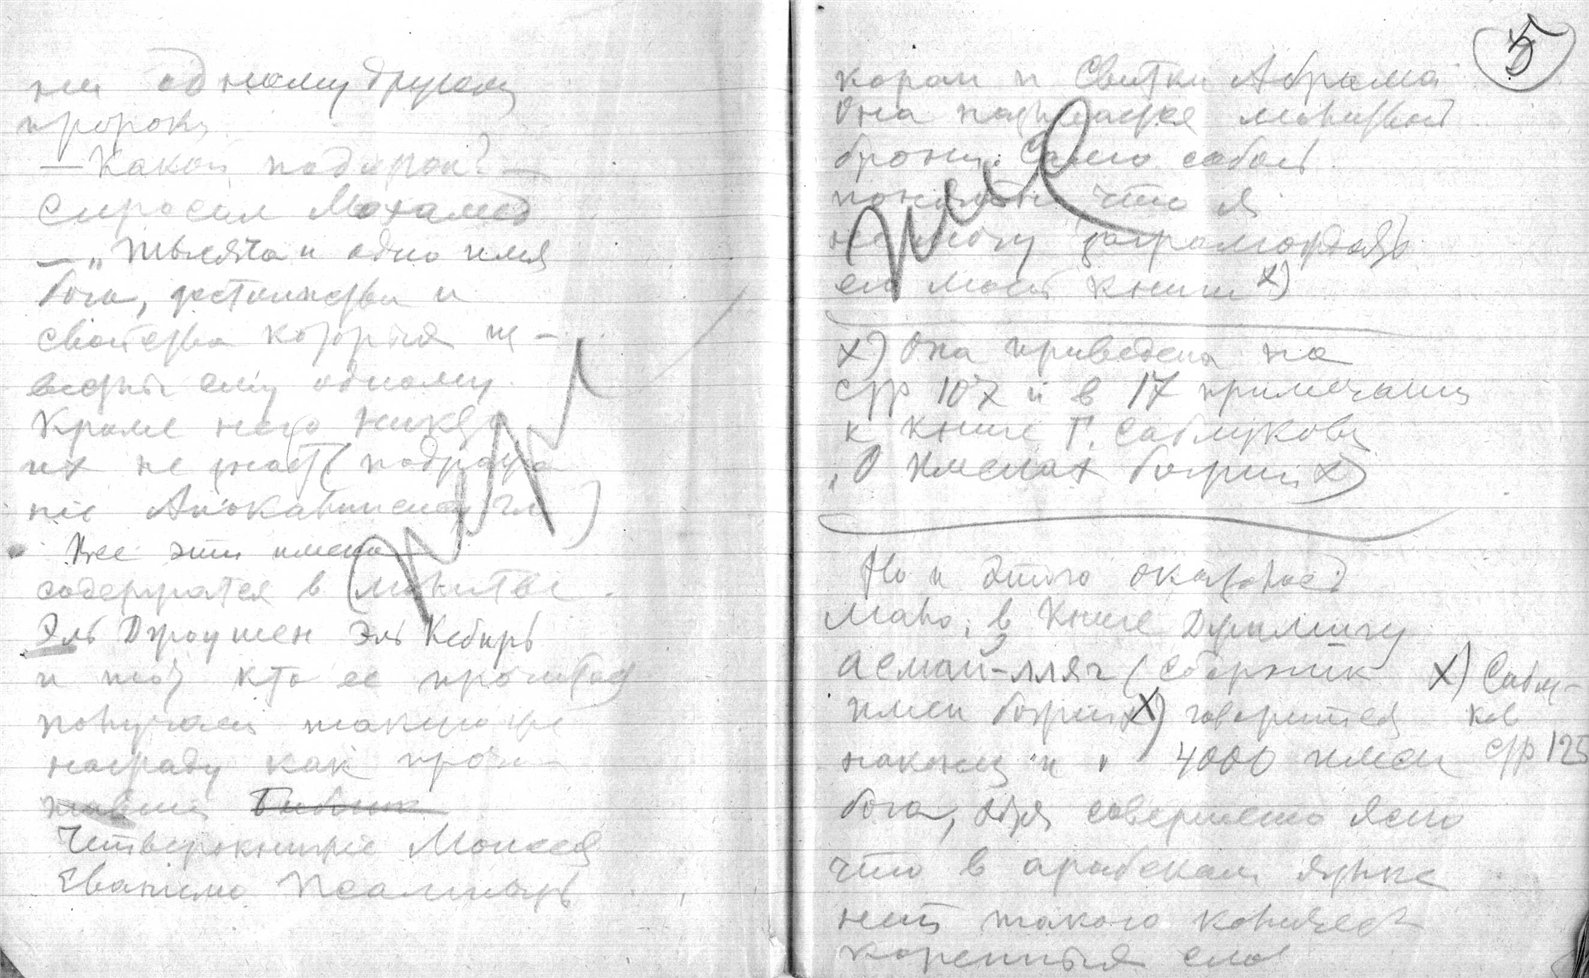 ни одному другому
пророку
— Какой подарок? —
Спросил Мохамед
— „Тысяча и одно имя
бога, достоинства и
свойства которыя из-
вестны ему одному.
Кроме него никто
их не знает (подража
ние Апокалипсиса гл )
Все эти имена
содержатся в молитве.
Эль Джоушен Эль Кебирь
и тот кто ее прочитает
получает такую же
награду как прочи-
тавший Библию
Четверокнижие Моисея
Евангелио Псалтырь
5
коран и Свитки Абрама
Она называется молитвой
брони. Само собой
понятно что я
не могу загромождать
ею моей книги х)
х) Она приведена на
стр 107 и в 17 примечании
к книге Г. Саблукова
„О Именах божиих)
Но и этого оказалось
мало, в книге Джамигу
асмай-лляг (Сборник
имен божиих Х) говорится
наконец и 4000 имен
бога, хотя совершенно ясно
что в арабском языке
нет такого количества
коренныя слов
Х) Саблу-
ков
стр 125